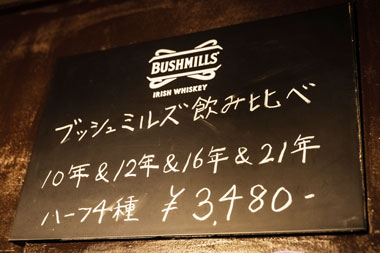 BUSHMILLS
IRISH WHISKEY
ブッシュミルズ飲み比べ
10年&12年&16年&21年
ハーフ4種 ¥3,480-